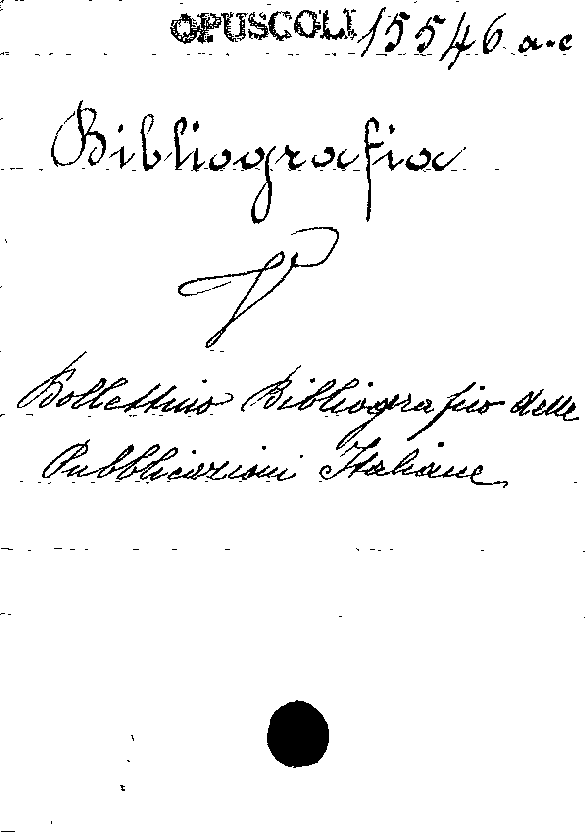 OPUSCOLI 15546 a-c
Bibliografia
V
Bollettino Bibliografico delle
Pubblicazioni Italiane